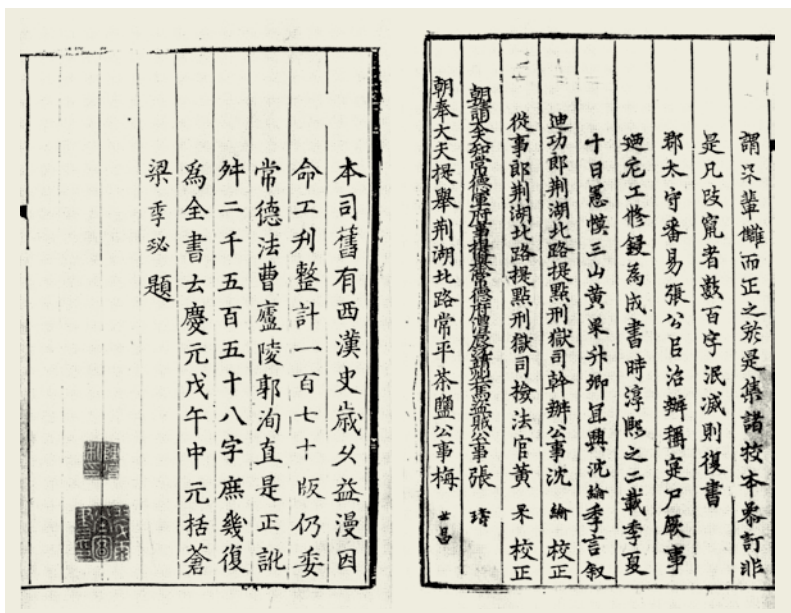 謂杲輩讎而正之於是集諸校本參訂非
是凡改竄者數百字泯滅則復書
郡太守番昜張公㠯治辦稱寔尸厥事
廼庀工修鋟為成書時淳熙之二載季夏
十日憲幙三山黃杲升卿宜興沈綸季言叙
迪功郎荆湖北路提點刑獄司幹辦公事沈 綸 校正
從事郎荆湖北路提點刑獄司檢法官黃 杲 校正
朝請大夫知常德軍府事提舉常德府澧辰沅靖州兵馬盜賊公事張 𤩽
朝奉大夫提舉荆湖北路常平茶鹽公事梅 世昌
本司舊有西漢史歲久益漫因
命工刋整計一百七十版仍委
常德法曹廬陵郭洵直是正訛
舛二千五百五十八字庶幾復
為全書云慶元戊午中元括蒼
梁季珌題